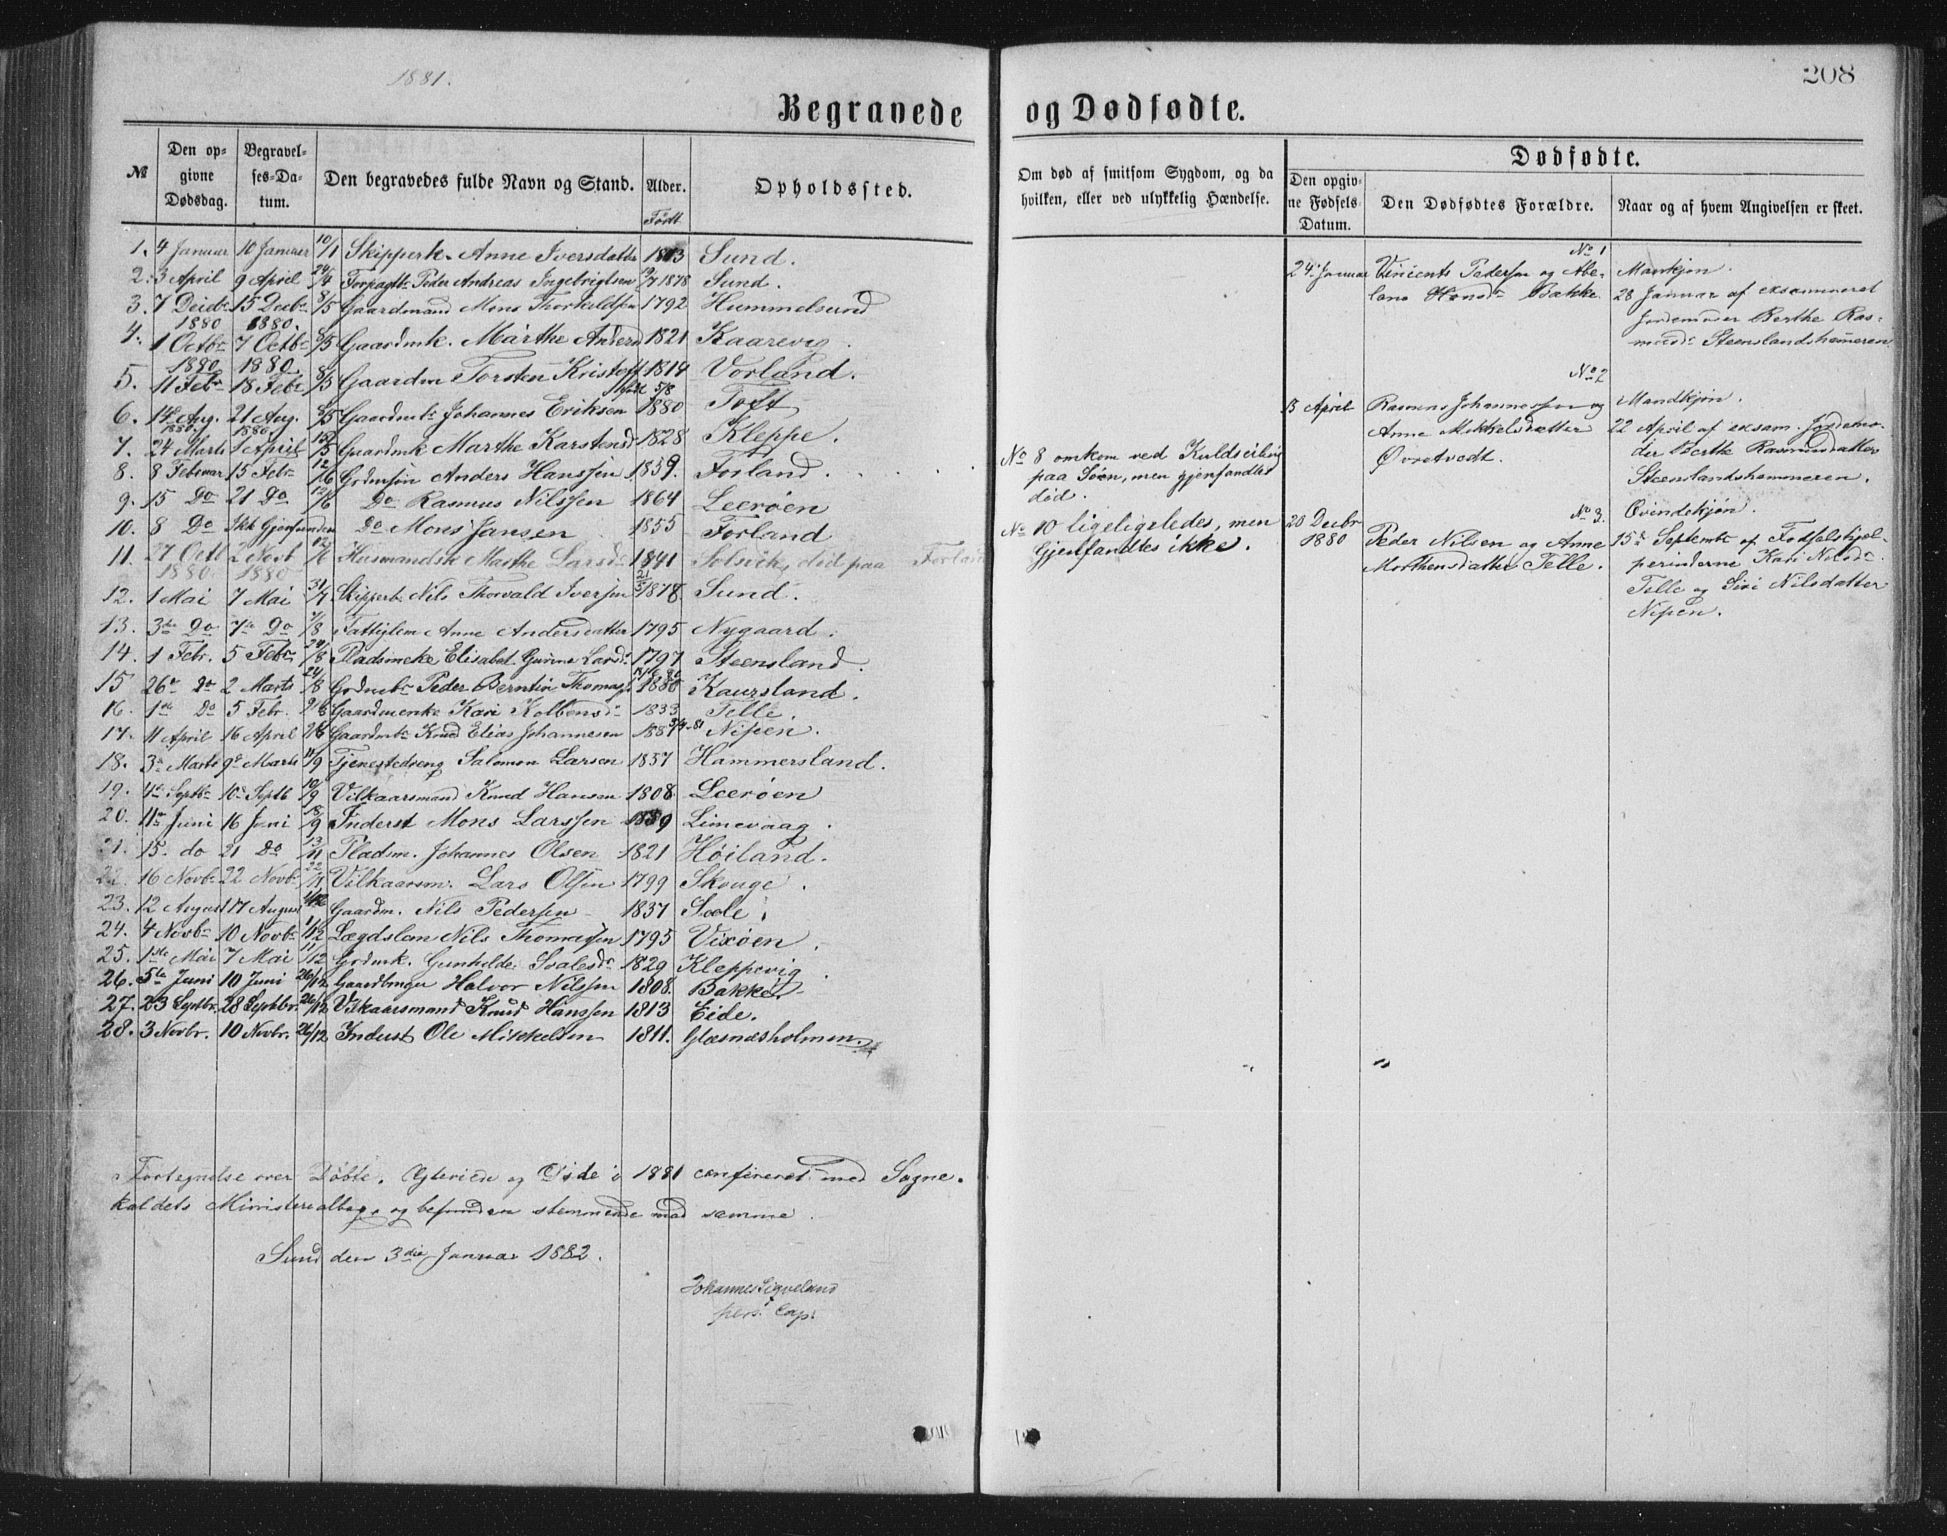 1881.
208
Begravede og Dødfødte.
№ Den opgivne Dødsdag. Begravelses-Datum. Den begravedes fulde Navn og Stand. Alder. Født Opholdssted.
Om død af smitsom Sygdom, og da hvilken, eller ved ulykkelig Hændelse.
Dødfødte.
Den opgivne Fødsels-Datum. Den Dødfødtes Forældre. Naar og af hvem Angivelsen er skeet.
1. 4 Januar 10 Januar 10/1 Skipperk. Anne Iversdatter 1813 Sund.
2. 3 April 9 April 24/4 Forpagtb. Peder Andreas Ingebrigtsen 1878 Sund.
3. 7 Decbr 1880 15 Decbr 1880. 8/5 Gaardmand Mons Thorkildsen 1792 Hummelsund
4. 1 Octbr 1880 7 Octbr 1880. 8/5 Gaardmk. Marthe Andersd 1821 Kaarevig.
5. 11 Febr 18 Febr 8/5 Gaardm Torsten Kristoff 1814 Vorland.
6. 14de Aug. 1880. 21 Aug. 1880. 8/5 Gaardmb. Johannes Eriksen født 5/8 1880 Toft
7. 24 Marts 1 April 15/5 Gaardmk Marthe Karstensd 1828 Kleppe.
8. 8 Februar 15 Febr 12/6 Grdmsøn Anders Hanssen 1859. Forland.
9. 15 Do 21 Do 12/6 Do Rasmus Nilssen 1864 Leerøen
10. 8 Do Ikk Gjenfunden Do Mons Jansen 1855 Forland
11. 27 Octb 1880 2 Novb 1880 12/6 Husmandsk Marthe Larsdr 1841 Solsvik, død paa Forland
12. 1 Mai 7 Mai 31/7 Skipperb. Nils Thorvald Iversen 1878 Sund.
13. 3de Do 7de Do 7/8 Fattiglem Anne Andersdatter 1795 Nygaard.
14. 1 Febr. 5 Febr. 24/8 Pladsmeke Elisabet Gurine Larsdr 1797 Steensland.
15 26de Do 2 Marts 24/8 Grdmb. Peder Berntin Thomas 1880 Kaursland.
16. 1ste Do 5 Febr. Gaardmenk. Kari Kolbensdr 1833 Telle
17. 11 April 16 April Gaardmb. Knud Elias Johannesen 1881 Nipen.
18. 3de Marts 9de Marts 11/9 Tjenestedreng Salomon Larsen 1857 Hammersland.
19. 4de Septbr 10de Septb 10/9 Vilkaarsmand Knud Hansen 1808. Leerøen
20. 11te Juni 16 Juni 18/9 Inderst Mons Larssen 1839 Limevaag.
21. 15. do 21 Do 13/11 Pladsm. Johannes Olsen 1821 Høiland.
22. 16 Novbr 22 Novbr 22/11 Vilkaarsm. Lars Olsen 1799 Skouge.
23. 12 August 17 August Gaardm. Nils Pedersen 1837 Soele.
24. 4 Novbr 10 Novbr Lægdslem Nils Thomassen 1795 Vixøen.
25. 1ste Mai 7 Mai 11/12 Grdmk. Gunhilde Soalesdr 1829 Kleppevig.
26. 5te Juni 10 Juni 26/12 Gaardbruger Halvor Nilssen 1808. Bakke.
27. 23 Septbr. 28 Septbr. 26/12 Vilkaarsmand Knud Hanssen 1813 Eide.
28. 3 Novbr. 10 Novbr. 26/12 Inderst Ole Mikkelsen 1811. Glæsnæsholmen.
No 8 omkom ved Kuldseiling
paa Søen, men gjenfandtes
død.
No 10 ligeligeledes, men
Gjenfandtes ikke.
No 1
24 Januar Vincents Pedersen og Abelone Hansdr Bakke.
Mankjøn.
28 Januar af examineret
Jordemoder Berthe Rasmusdr Steenslandshameren
No 2
13 April Rasmus Johannessen og
Anne Mikkelsdatter
Øvretvedt.
Mandkjøn.
22 April af exsam. Jordemoder Berthe Rasmusdatter
Steenslandshammeren.
No 3.
20 Decbr 1880 Peder Nilsen og Anne
Morthensdatter Telle.
Qvindekjøn.
15de Septembr af Fødselshjelperinderne Kari Nilsdr
Telle og Siri Nilsdatter
Nipen.
Fortegnelse over Døbte, Ægteviede og Døde i 1881 confereret med Sognekaldets Ministerialbog, og befunden stemmende med samme.
Sund den 3die Januar 1882.
Johannes Sigveland
pers. Cap.